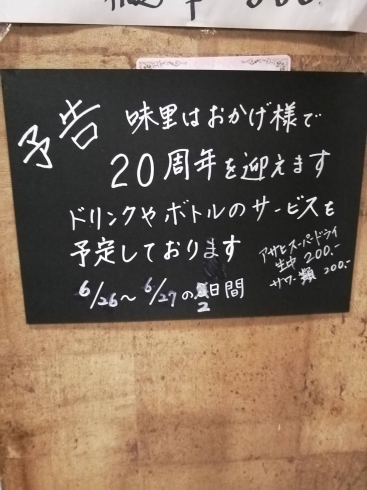 予告
味里はおかげ様で
20周年を迎えます
ドリンクやボトルのサービスを
予定しております
6/26〜6/27の2日間
アサヒスーパードライ
生中 200.-
サワー類 200.-